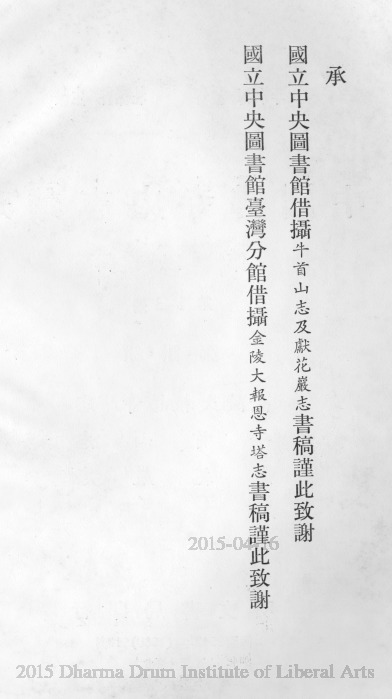 承
國立中央圖書館借攝牛首山志及獻花巖志書稿謹此致謝
國立中央圖書館臺灣分館借攝金陵大報恩寺塔志書稿謹此致謝
2015-04-16
2015 Dharma Drum Institute of Liberal Arts